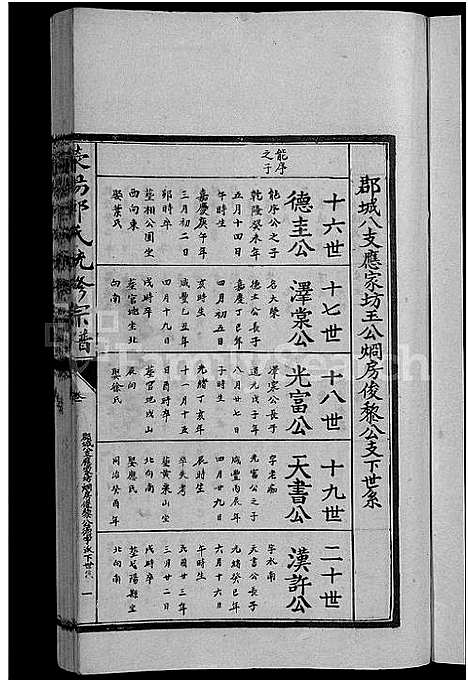 郡城八支應家坊王公烱房俊黎公支下世系
十六世
能序
之子
德圭公
能序公之子
乾隆癸未年
五月十四日
午時生
嘉慶庚午年
三月初二日
卯時卒
塟相公圓坐
西向東
娶葉氏
十七世
澤棠公
名大榮
德圭公長子
嘉慶丁巳年
四月初五日
亥時生
咸豐乙丑年
四月十九日
戌時卒
塟官地坐北
向南
十八世
光富公
澤棠公長子
道光戊子年
八月廿七日
子時生
光緒丁亥年
十一月十五
日酉時卒
塟官地戌山
辰向
娶徐氏
十九世
天書公
字老
光富公之子
咸豐丙辰年
四月廿九日
辰時生
卒失考
塟黄東山坐
北向南
娶應氏
同治癸酉年
二十世
漢許公
字永南
天書公長子
光緒癸巳年
六月十六日
午時生
民國廿三年
三月廿二日
戌時卒
塟弋陽縣坐
北向南
滎陽鄭氏統修宗譜
卷
郡城八支應家坊烱房俊黎公支下世系
一